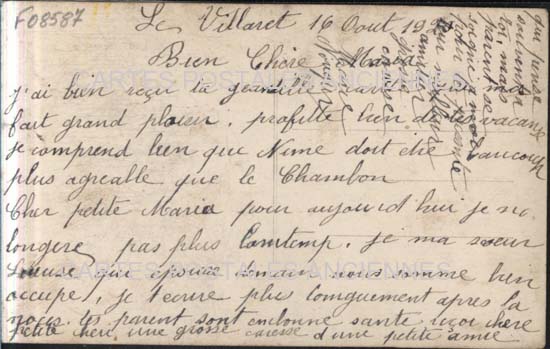 F08587
Le Villaret 16 Out 19
Bien Chère Maria
j'ai bien reçu ta gentille carte ma
fait grand plaisir, profitte bien des vacance
je comprend bien que Nime doit etre beaucoup
plus agreable que le Chambon
Cher petite Maria pour aujourd'hui je ne
longere pas plus Lomtemp. je ma sœur
Louise qui épouse demain nous somme bien
occupé, je t'ecrire plus longuement apres la
noces tes parent sont enbonne sante reçoi chere
petite chere une grosse caresse d'une petite amie
qui pense
souvent a
toi, mais
CARTES POSTALES ANCIENNES
CARTES POSTALES ANCIENNES